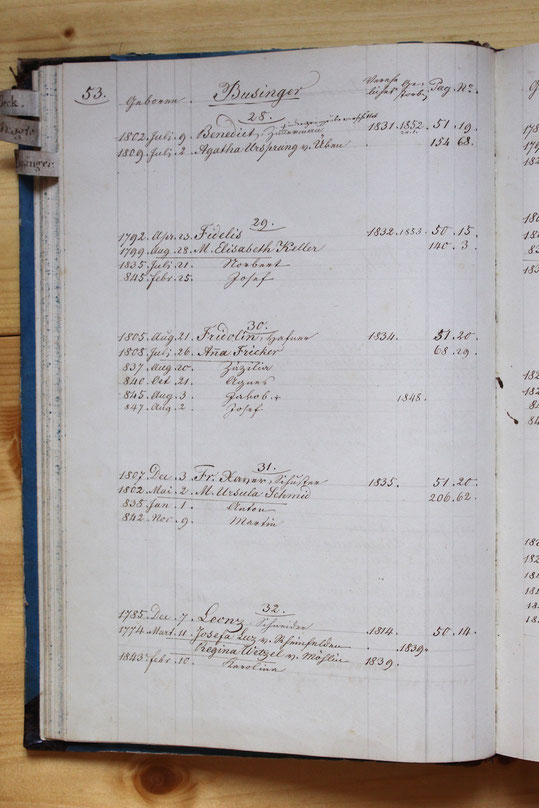 53. Geboren. Businger Verehlichet Gestorb. Pag. No.
28.
1802. Juli. 9. Benedict, Zimmermann 1831. 1852. 51. 19.
1809. Juli. 2. Agatha Ursprung v. Üken 154 68.
29.
1792. Apr. 23. Fidelis 1832. 1853. 50. 15.
1799. Aug. 28. M. Elisabeth Keller 140. 3.
1835. Juli. 21. Norbert
845. Febr. 25. Josef
30.
1805. Aug. 21. Fridolin, Hafner 1834. 51. 20.
1808. Juli. 26. Aña Fricker 68. 29.
837. Aug. 20. Zäzilia
840. Oct. 21. Agnes
845. Aug. 3. Jakob + 1848.
847. Aug. 2. Josef
31.
1807. Dec. 3. Fr. Xaver, Schuster 1835. 51. 20.
1802. Mai. 2. M. Ursula Schmid 206. 62.
835. Jan. 1. Anton
842. Nov. 9. Martin
32.
1785. Dec. 7. Leonz, Schneider
1774. Mart. 11. Josefa Luz v. Rheinfelden 1814. 1839. 50. 14.
Regina Wetzel v. Möhlin 1839.
1843. Febr. 10. Karolina